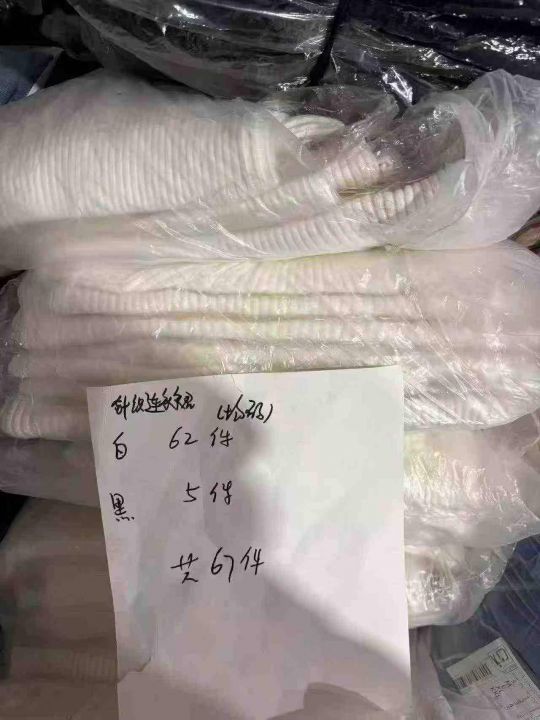 针织连衣裙 (均码)
白 62件
黑 5件
共67件